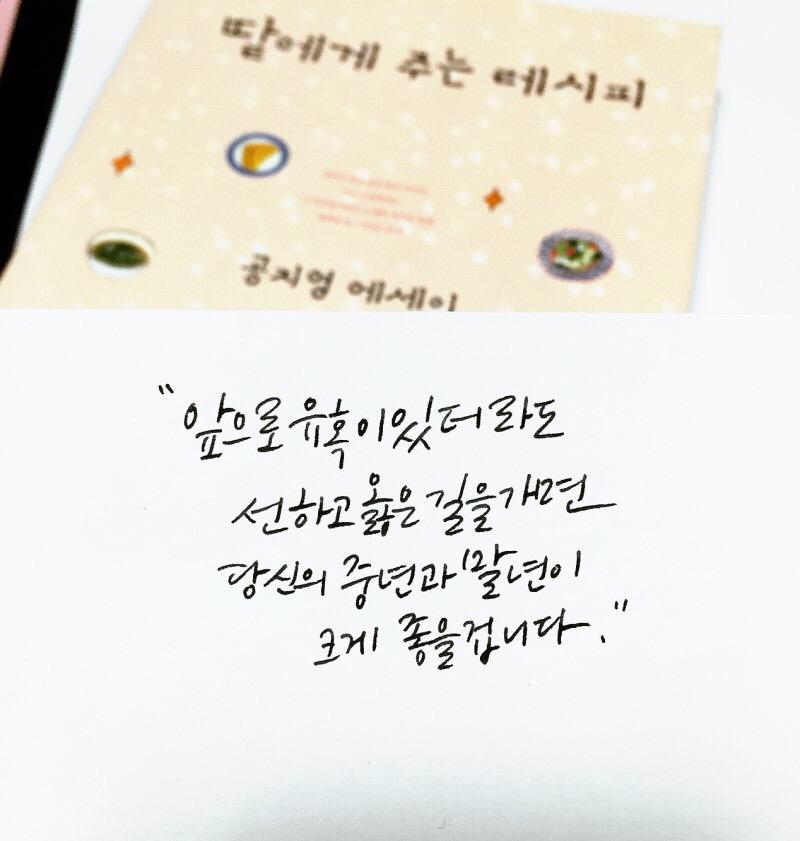 딸에게 주는 레시피
공지영 에세이
"앞으로 유혹이 있더라도
선하고 옳은 길을 개면
당신의 중년과 말년이
크게 좋을겁니다."